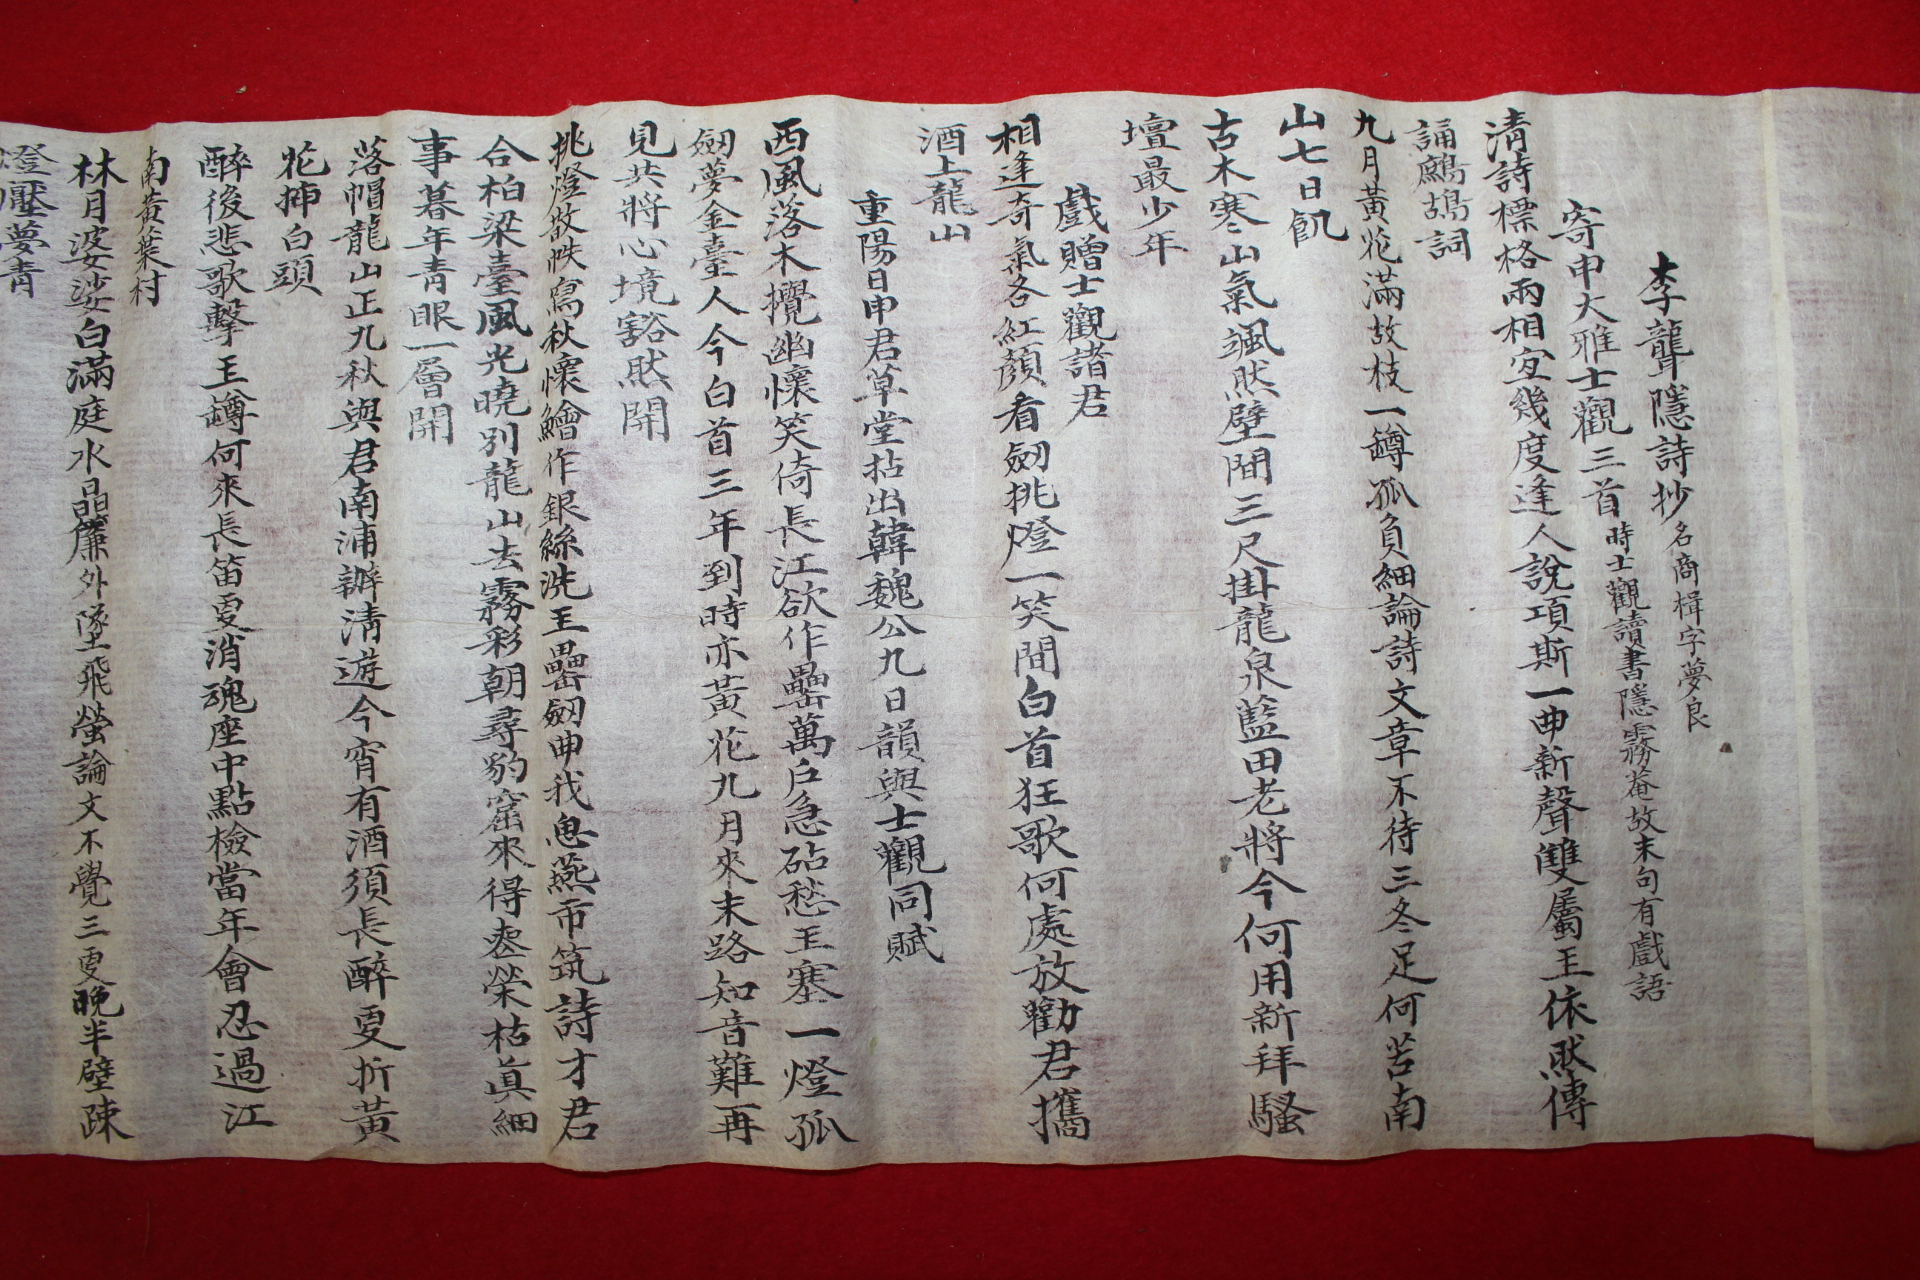 李聾隱詩抄 名商楫字夢良
寄申大雅士觀三首 時士觀讀書隱霧菴故末句有戲語
淸詩標格兩相宜幾度逢人說項斯一曲新聲雙屬玉依然傳
誦鷓鴣詞
九月黃花滿故枝一罇孤負細論詩文章不待三冬足何苦南
山七日飢
古木寒山氣颯然壁間三尺掛龍泉藍田老將今何用新拜騷
壇最少年
戲贈士觀諸君
相逢奇氣各紅顏看劒挑燈一笑間白首狂歌何處放勸君攜
酒上龍山
重陽日申君草堂拈出韓魏公九日韻與士觀同賦
西風落木攪幽懷笑倚長江欲作罍萬戶急砧愁玉塞一燈孤
劒夢金臺人今白首三年到時亦黃花九月來末路知音難再
見共將心境豁然開
挑燈散帙寫秋懷鱠作銀絲洗玉罍劒曲我思燕市筑詩才君
合柏梁臺風光曉別龍山去霧彩朝尋豹窟來得喪榮枯眞細
事暮年靑眼一層開
落帽龍山正九秋與君南浦辦淸遊今宵有酒須長醉更折黃
花揷白頭
醉後悲歌擊玉罇何來長笛更消魂座中點檢當年會忍過江
南黃葉村
林月婆娑白滿庭水晶簾外墜飛螢論文不覺三更晩半壁疎
燈壓夢靑